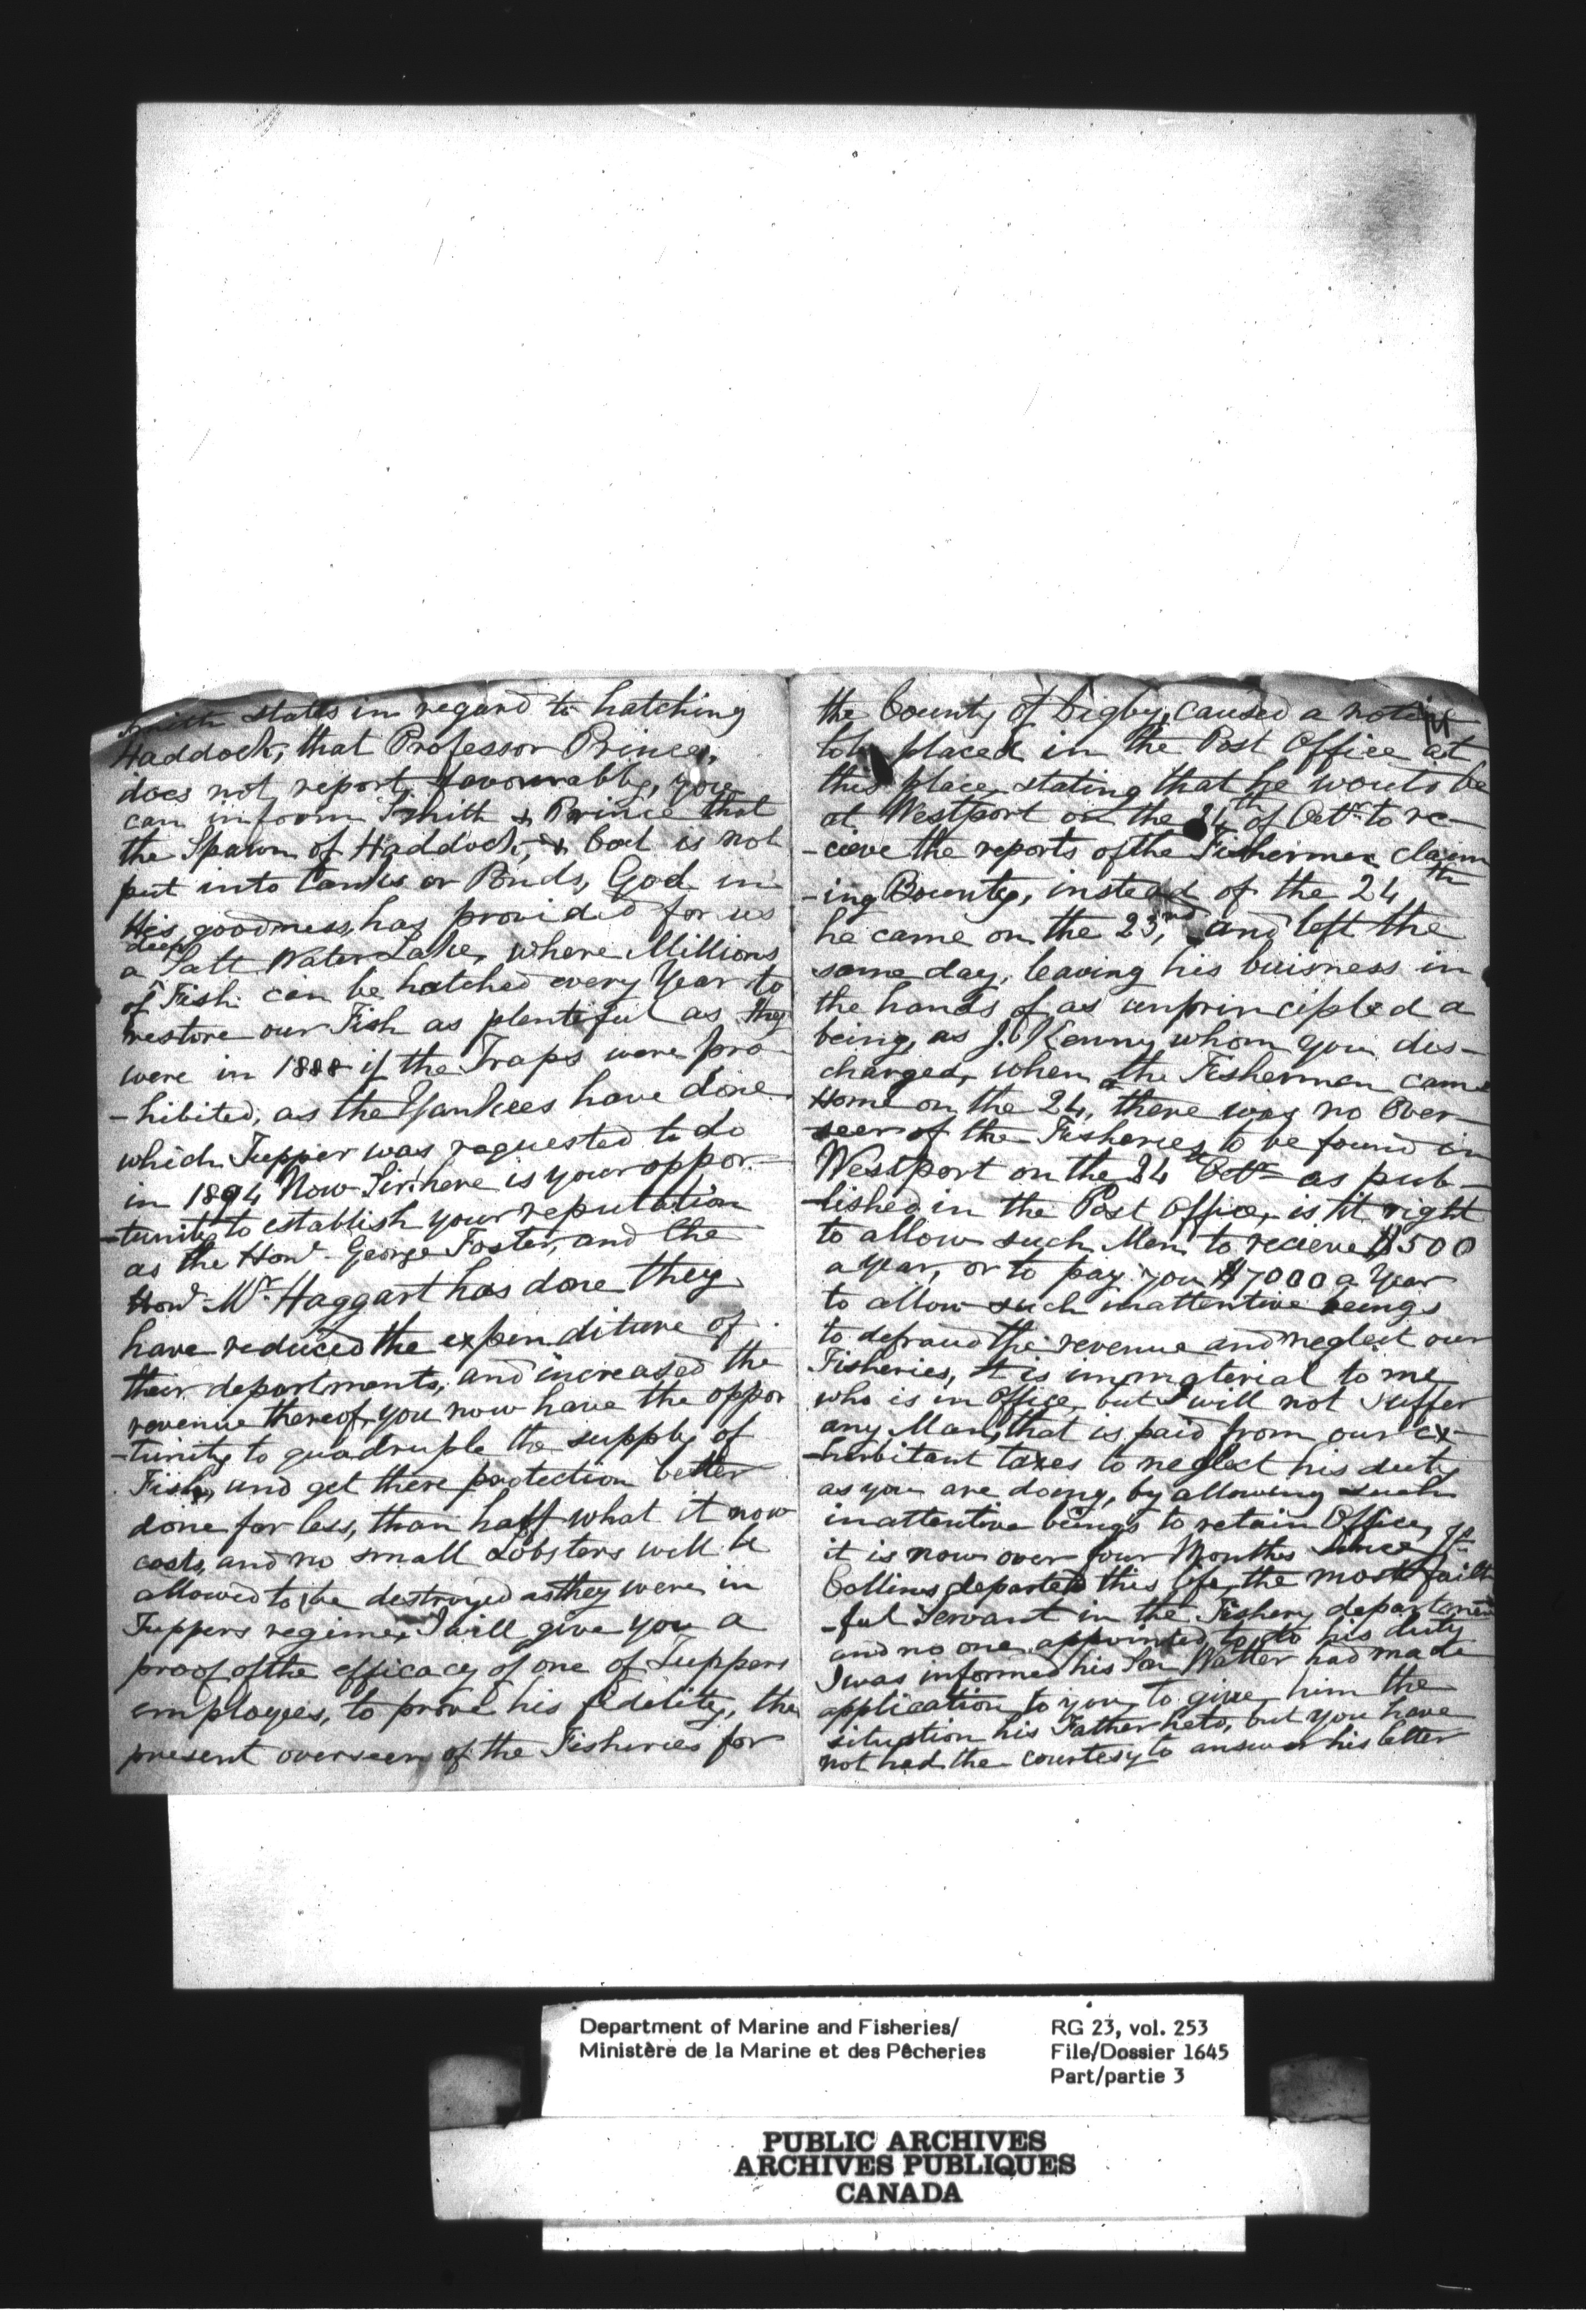 Smith states in regard to hatching
Haddock, that Professor Prince,
does not report favourably, you
can inform Smith & Prince that
the Spawn of Haddock, & Cod is not
put into Tanks or Ponds, God in
His goodness, has provided for us
a deep Salt Water Lake, where Millions
of Fish can be hatched every Year to
restore our Fish as plentiful as they
were in 1888 if the Traps were pro
-hibited, as the Yankees have done
which Tupper was requested to do
in 1894 Now Sir, here is your oppor-
-tunity to establish your reputation
as the Honl. George Foster, and the
Honl. Mr. Haggart has done they
have reduced the expenditure of
their departments, and increased the
revenue thereof, you now have the oppor
-tunity to quadruple the supply of
Fish, and get there protection better
done for less, than half what it now
costs, and no small Lobsters will be
allowed to be destroyed as they were in
Tuppers regime, I will give you a
proof of the efficacy of one of Tuppers
employees, to prove his fidelity, the
present overseer of the Fisheries for
the County of Digby, caused a notice
to be placed in the Post Office at
this place, stating that he would be
at Westport on the 24th of Octr. to re-
-cieve the reports of the Fishermen claim
-ing Bounty, instead of the 24th
he came on the 23rd, and left the
same day, leaving his buisness in
the hands of as unprincipled a
being, as J. Kenny whom you dis-
charged, when the Fishermen came
Home on the 24, there was no Over-
seer of the Fisheries to be found in
Westport on the 24 Octr. as pub-
-lished in the Post Office, is it right
to allow such Men to recieve $500
a year, or to pay you $7000 a Year
to allow such inattentive beings
to defraud the revenue and neglect our
Fisheries, it is immaterial to me
who is in Office, but I will not suffer
any Man, that is paid from our ex-
-herbitant taxes to neglect his duty
as you are doing, by allowing such
inattentive beings to retain Office,
it is now over four Months since
Collins departed this life, the most faith
-ful Servant in the Fishery department
and no one appointed to do his duty
I was informed his Son Walter had made
application to you, to give him the
situation his Father held, but you have
not had the courtesy to answer his letter
Department of Marine and Fisheries/
Ministère de la Marine et des Pêcheries
RG 23, vol. 253
File/Dossier 1645
Part/partie 3
PUBLIC ARCHIVES
ARCHIVES PUBLIQUES
CANADA